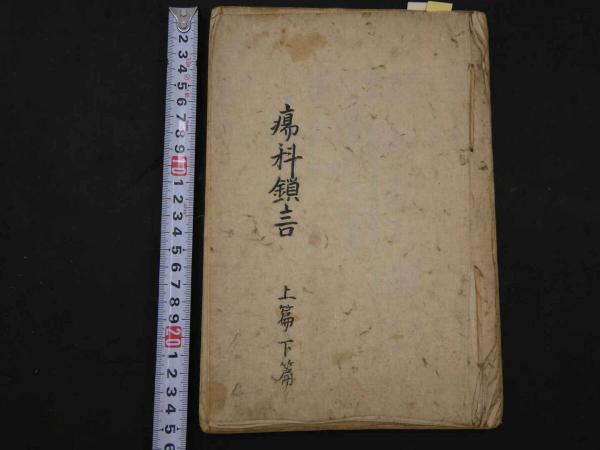 瘍科鎖言
上篇下篇
2
3
4
5
6
7
8
9
10
1
2
3
4
5
6
7
8
9
20
1
2
3
4
5
6